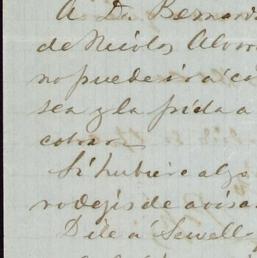 A D. Bernard
de Nicolas Alvar
no puede ir á co
sea y la pida a
cobrar
Si hubiere algo
no dejes de avisa
Dile á Sewell